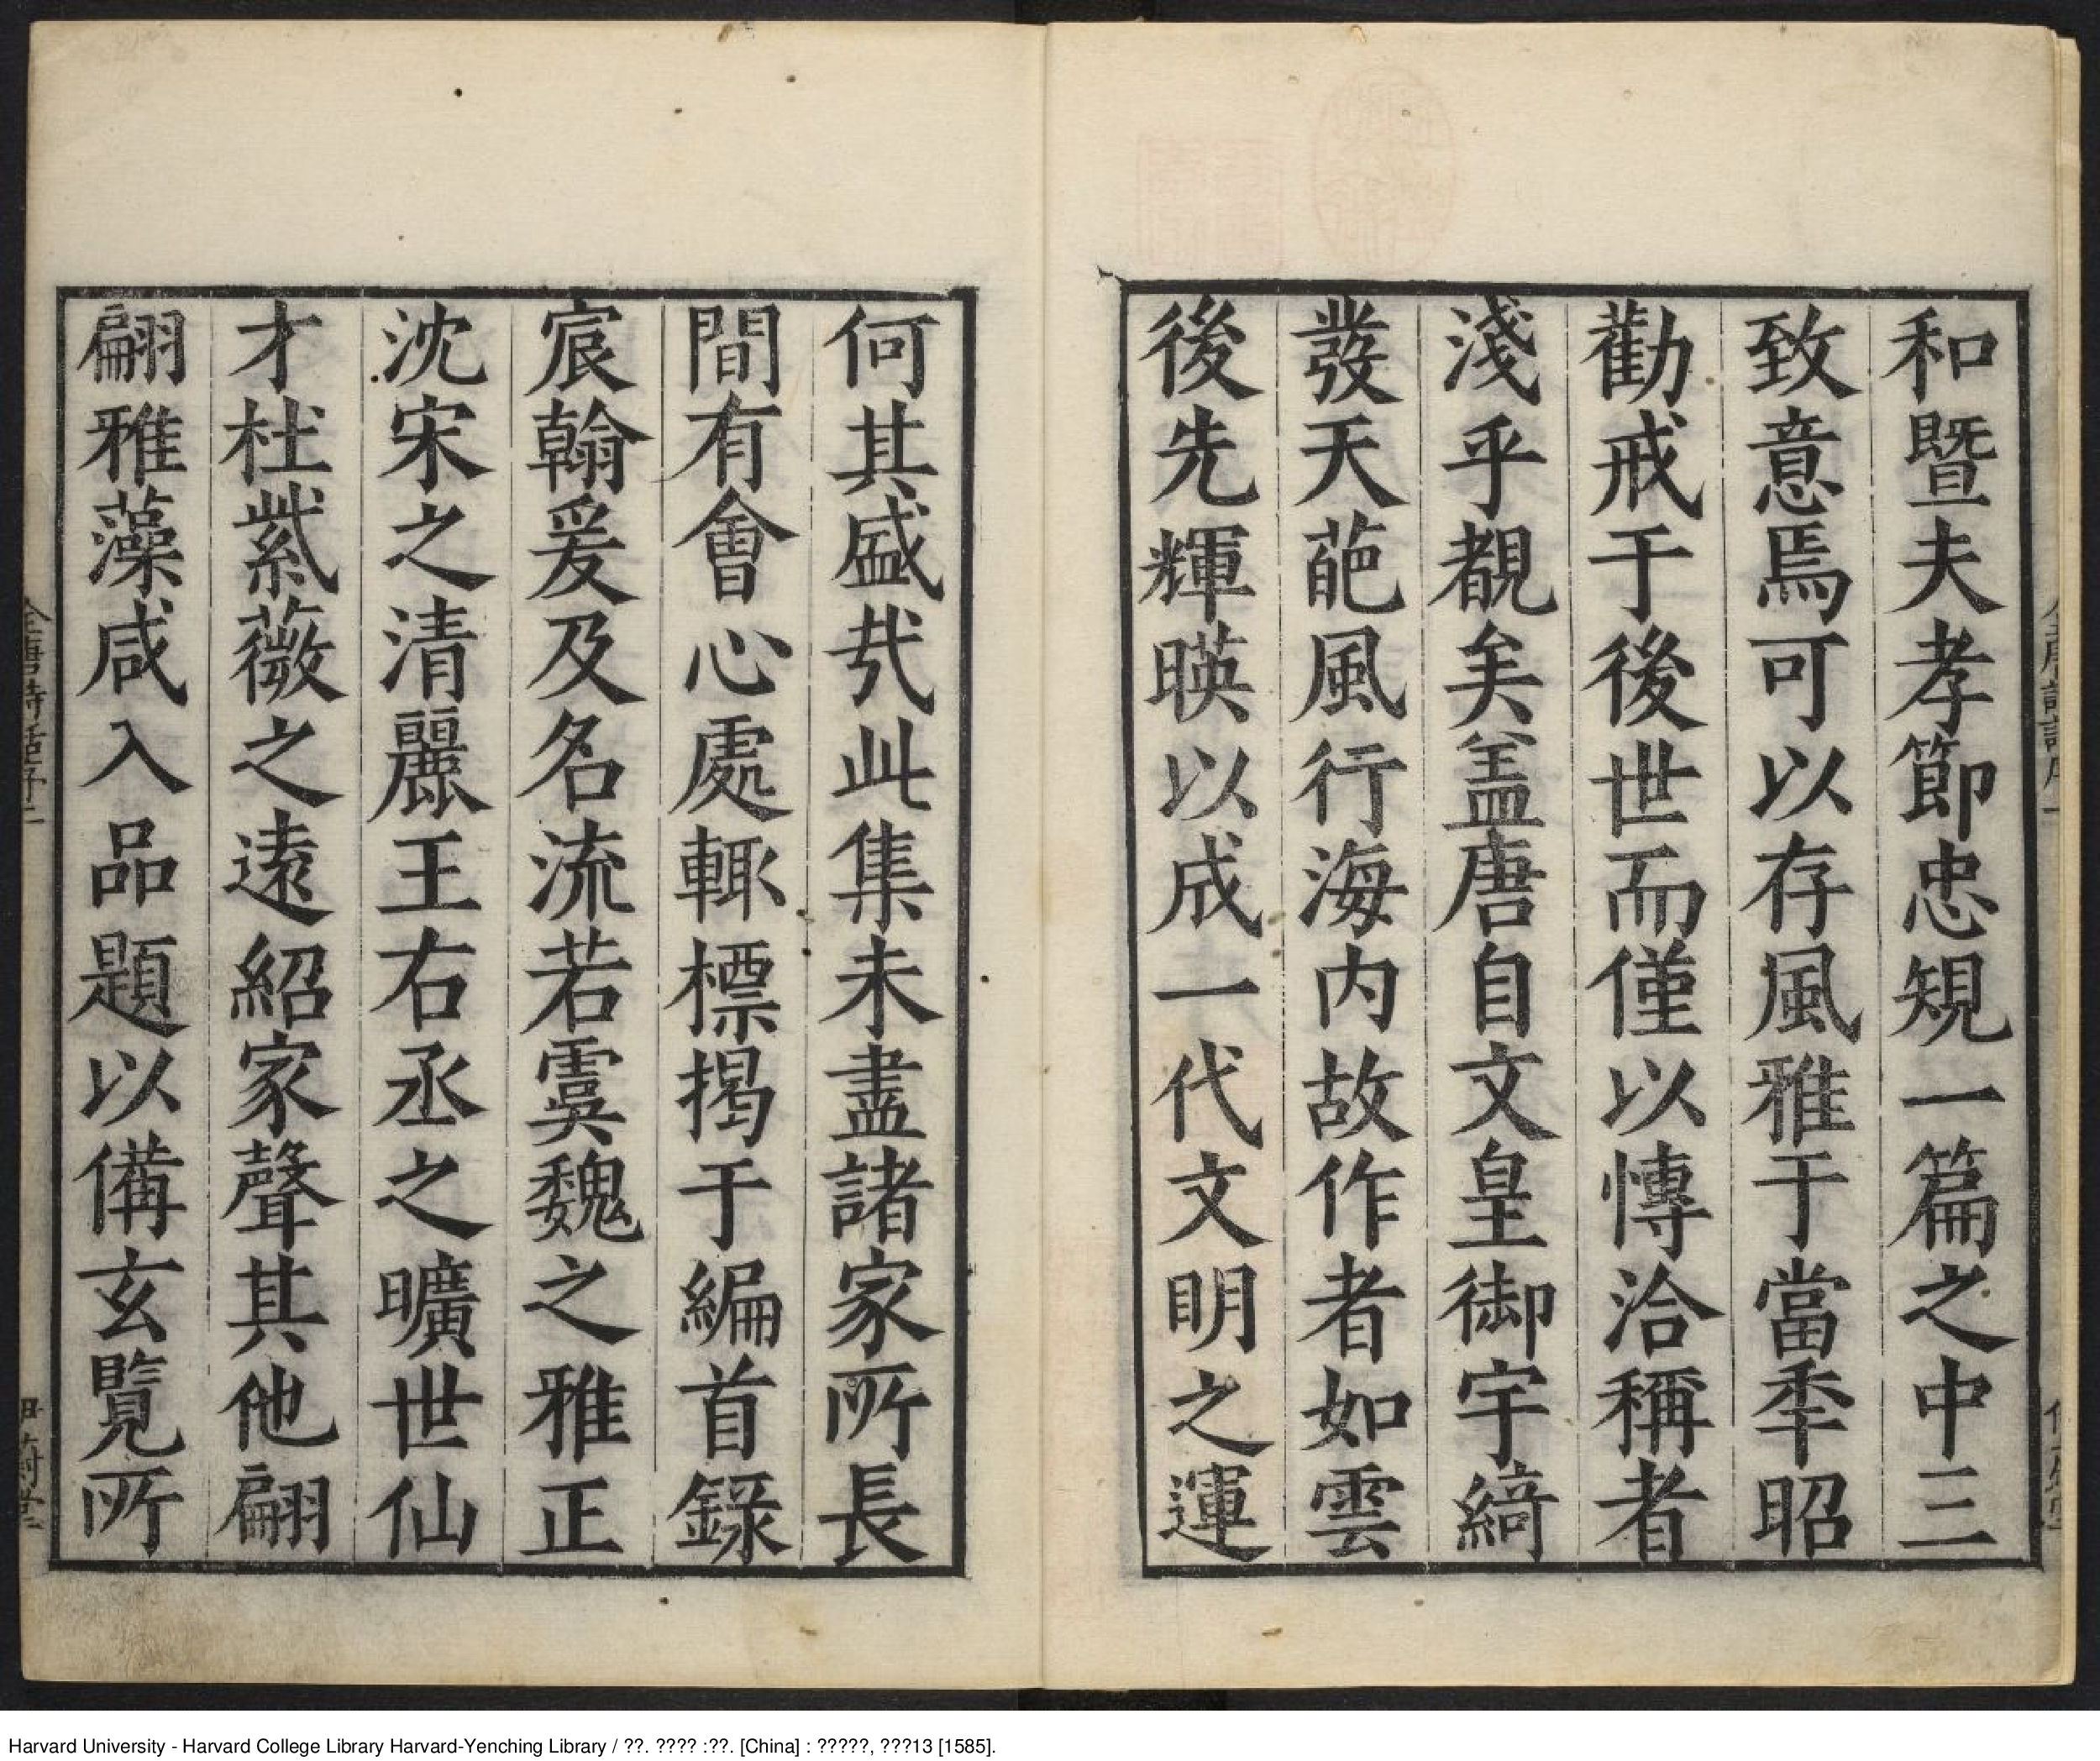 和暨夫孝節忠規一篇之中三
致意焉可以存風雅于當季昭
勸戒于後世而僅以愽洽稱者
淺乎覩矣盖唐自文皇御宇綺
發天葩風行海内故作者如雲
後先輝暎以成一代文明之運
何其盛㢤此集未盡諸家所長
間有會心處輙標揭于編首録
宸翰爰及名流若虞魏之雅正
沈宋之清麗王右丞之曠世仙
才杜紫薇之遠紹家聲其他翩
翩雅藻咸入品題以備玄覽所
Harvard University - Harvard College Library Harvard-Yenching Library / ??. ???? :??. [China] : ?????, ???13 [1585].